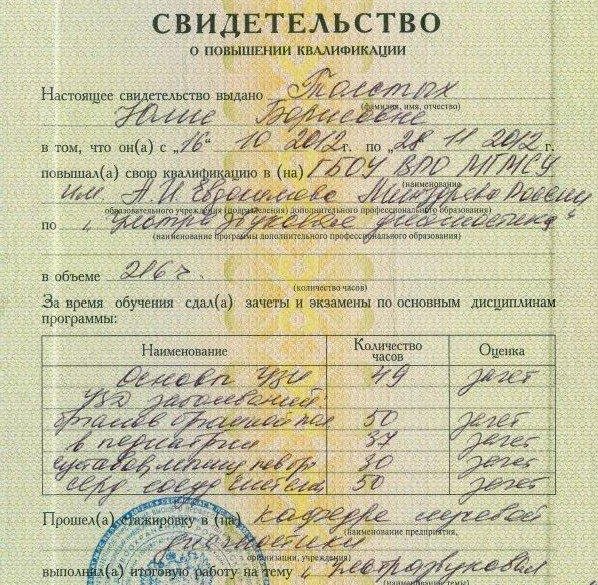 СВИДЕТЕЛЬСТВО
О ПОВЫШЕНИИ КВАЛИФИКАЦИИ
Настоящее свидетельство выдано Толстых
(фамилия, имя, отчество)
Юлие Борисовне
в том, что он(а) с „16“ 10 2012 г. по „28 11 2012 г.
повышал(а) свою квалификацию в (на) ГБОУ ВПО МГМСУ
(наименование
им. А И Евдокимова Минздрава России
образовательного учреждения (подразделения) дополнительного профессионального образования)
по „Ультразвуковое диагностика“
(наименование программы дополнительного профессионального образования)
в объеме 216 ч.
(количество часов)
За время обучения сдал(а) зачеты и экзамены по основным дисциплинам
программы:
Наименование Количество часов Оценка
Основы УЗИ 49 зачет
УЗД заболеваний
органов брюшной пол 50 зачет
в педиатрии 37 зачет
суставов 30 зачет
серд сосуд системы 50 зачет
Прошел(а) стажировку в (на) кафедре лучевой
(наименование предприятия,
диагностики
организации, учреждения)
выполнил(а) итоговую работу на тему „Ультразвуковая
(наименование темы)